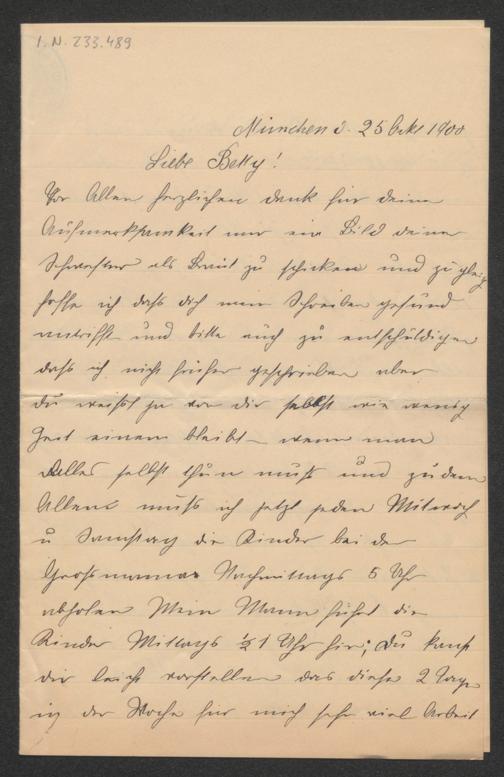 I.N. 233.489
München d. 25 Okt 1900
Liebe Betty!
Vor Allem herzlichen Dank für deine
Aufmerksamkeit mir ein Bild deiner
Schwester als Braut zu schicken und zu gleich
hoffe ich daß dich mein Schreiben gesund
antrifft und bitte auch zu entschuldigen
daß ich nicht früher geschrieben aber
du weißt ja von dir selbst wie wenig
Zeit einem bleibt wenn man
Alles selbst thun muß und zudem
Allem muß ich jetzt jeden Mittwoch
u Samstag die Kinder bei der
Großmama Nachmittags 5 Uhr
abholen Mein Mann führt die
Kinder Mittags ½ 1 Uhr hin; du kanst
dir leicht vorstellen das diese 2 Tage
in der Woche für mich sehr viel Arbeit